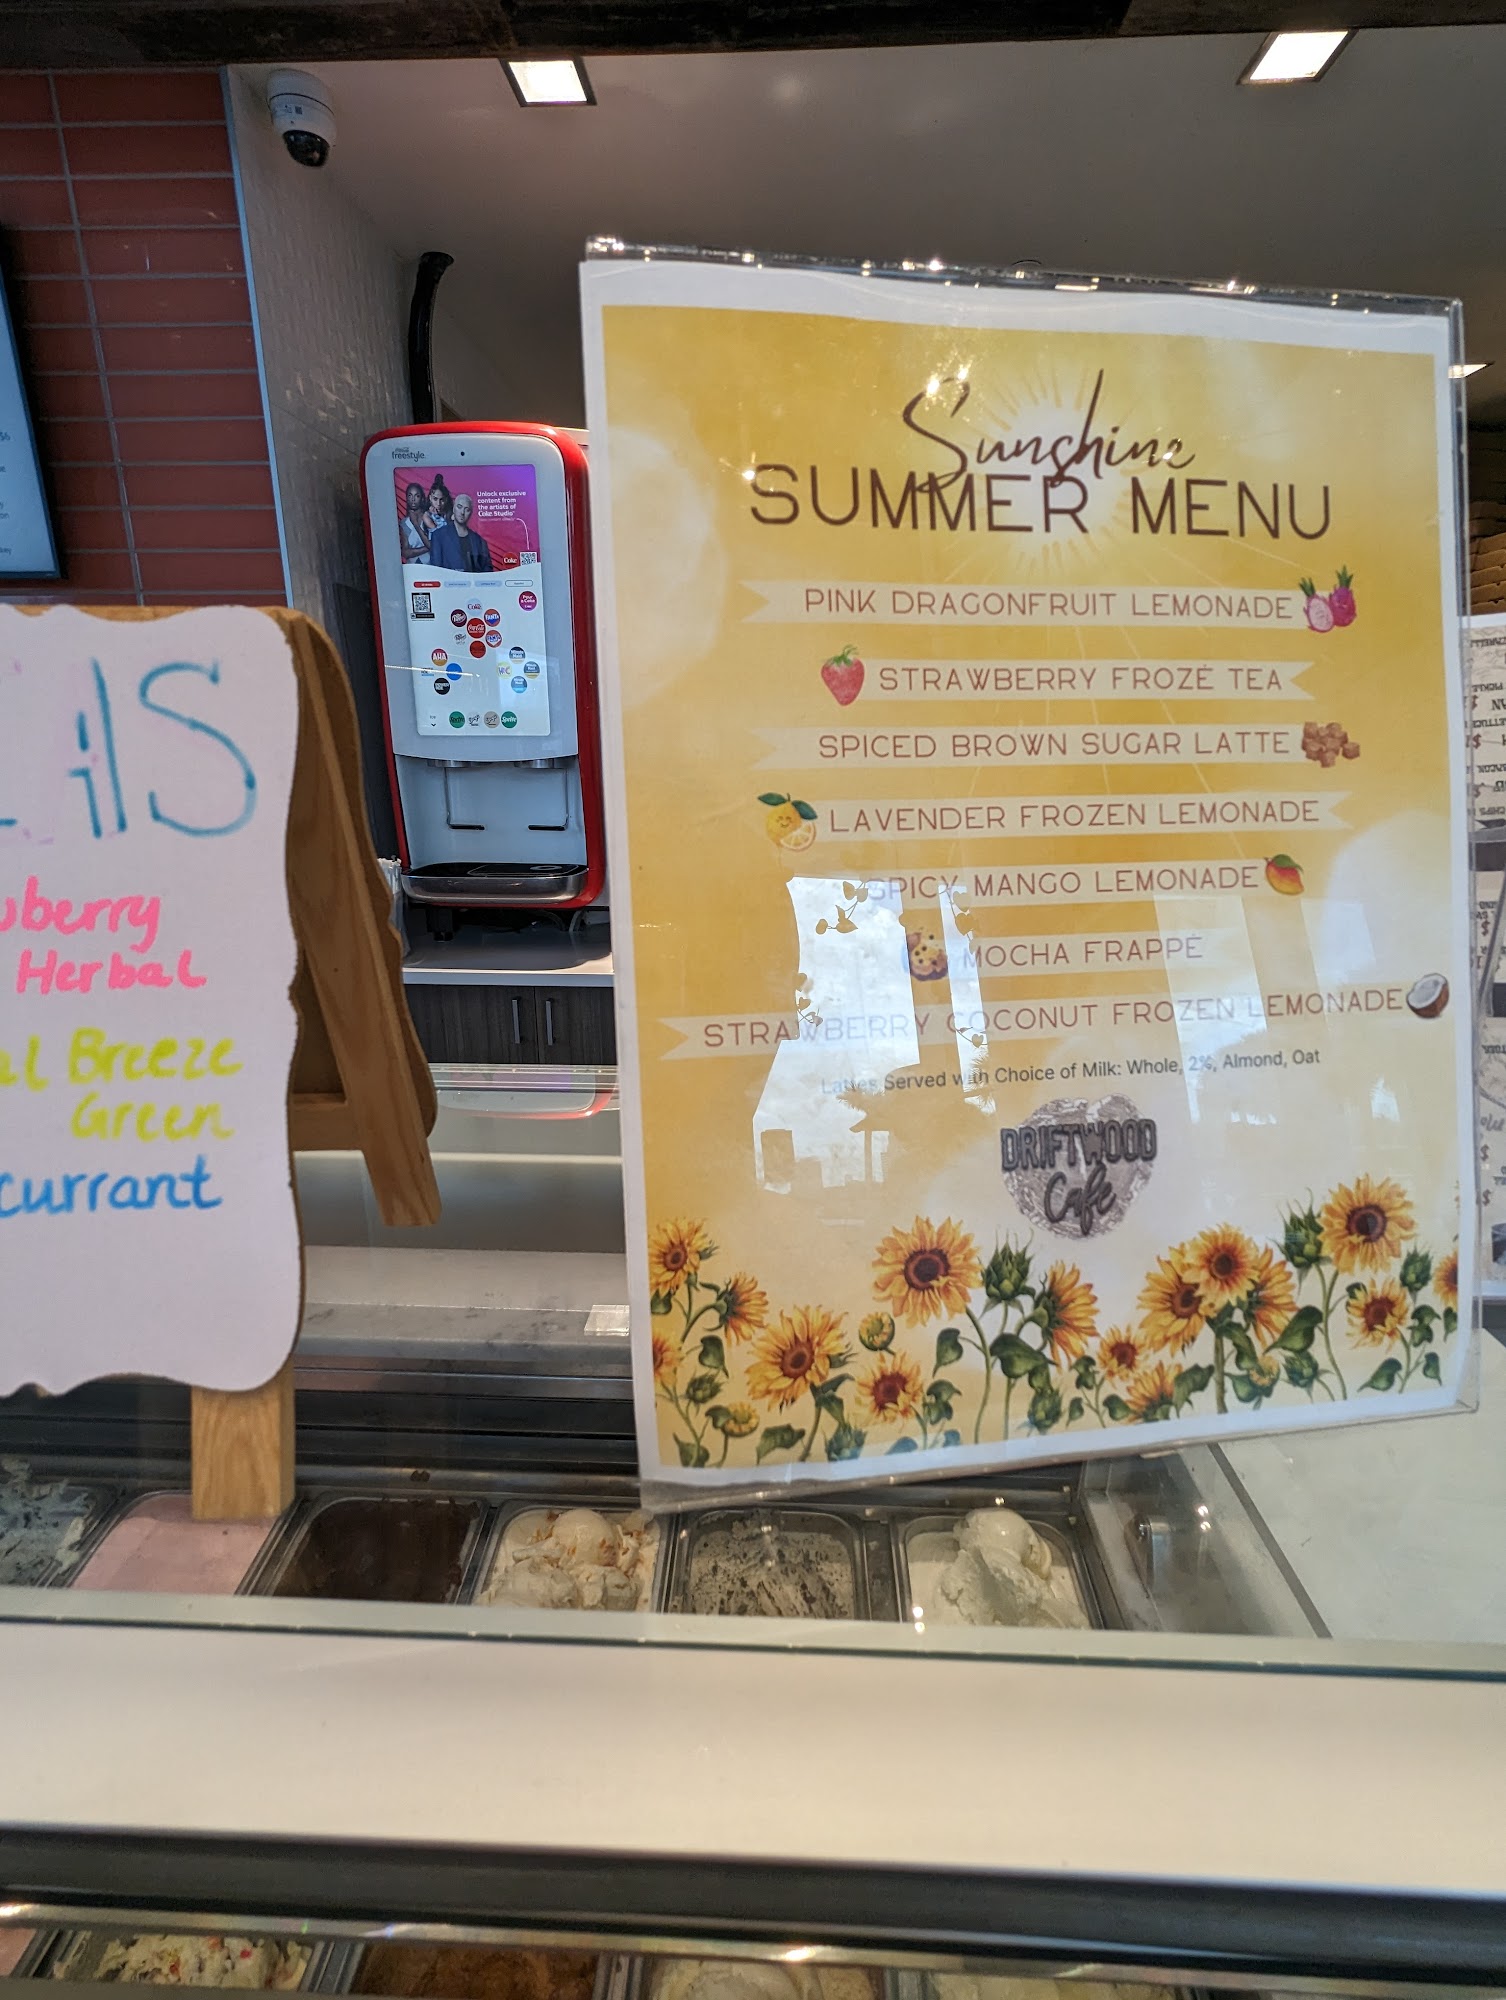 Sunshine
SUMMER MENU
PINK DRAGONFRUIT LEMONADE
STRAWBERRY FROZÉ TEA
SPICED BROWN SUGAR LATTE
LAVENDER FROZEN LEMONADE
SPICY MANGO LEMONADE
MOCHA FRAPPÉ
STRAWBERRY COCONUT FROZEN LEMONADE
Lattes Served with Choice of Milk: Whole, 2%, Almond, Oat
DRIFTWOOD
Cafe
Herbal
Breeze
Green
freestyle
Unlock exclusive
content from
the artists of
Coke Studio
Coke
AHA
Sprite
$6